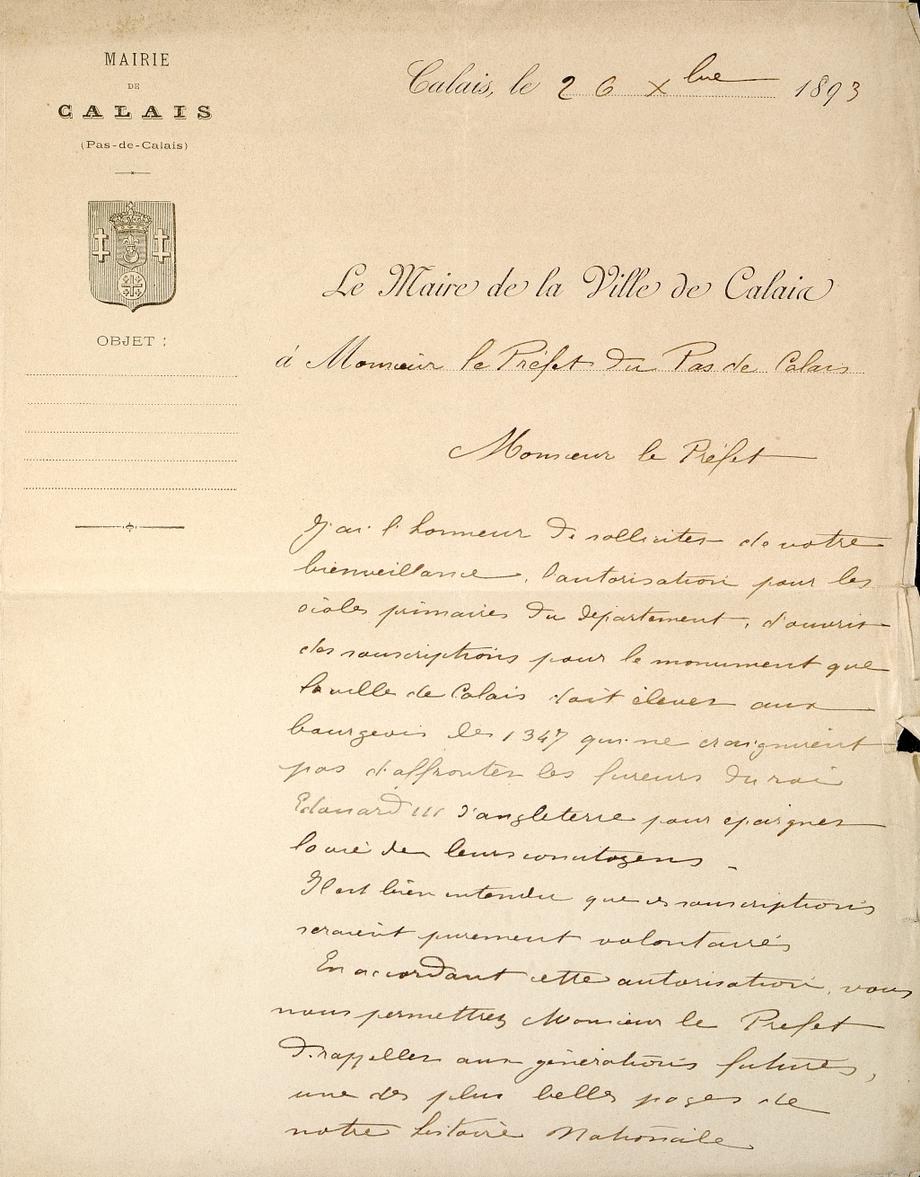 MAIRIE
DE
CALAIS
(Pas-de-Calais)
OBJET :
Calais, le 26 Xbre 1893
Le Maire de la Ville de Calais
à Monsieur le Préfet du Pas de Calais
Monsieur le Préfet
J'ai l'honneur de solliciter de votre
bienveillance, l'autorisation pour les
écoles primaires du département, d'ouvrir
des souscriptions pour le monument que
la ville de Calais doit élever aux
bourgeois de 1347 qui ne craignirent
pas d'affronter les fureurs du roi
Edouard III d'angleterre pour épargner
la vie de leurs concitoyens.
Il est bien entendu que ces souscriptions
seraient purement volontaires
En accordant cette autorisation, vous
nous permettrez Monsieur le Préfet
de rappeller aux générations futures,
une des plus belles pages de
notre histoire Nationale